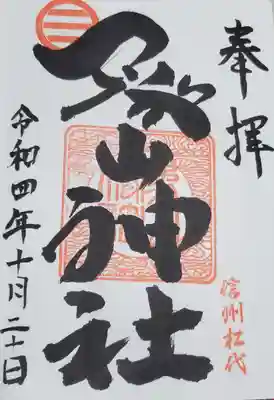 奉拝
信州松代
象山神社
令和四年十月二十日